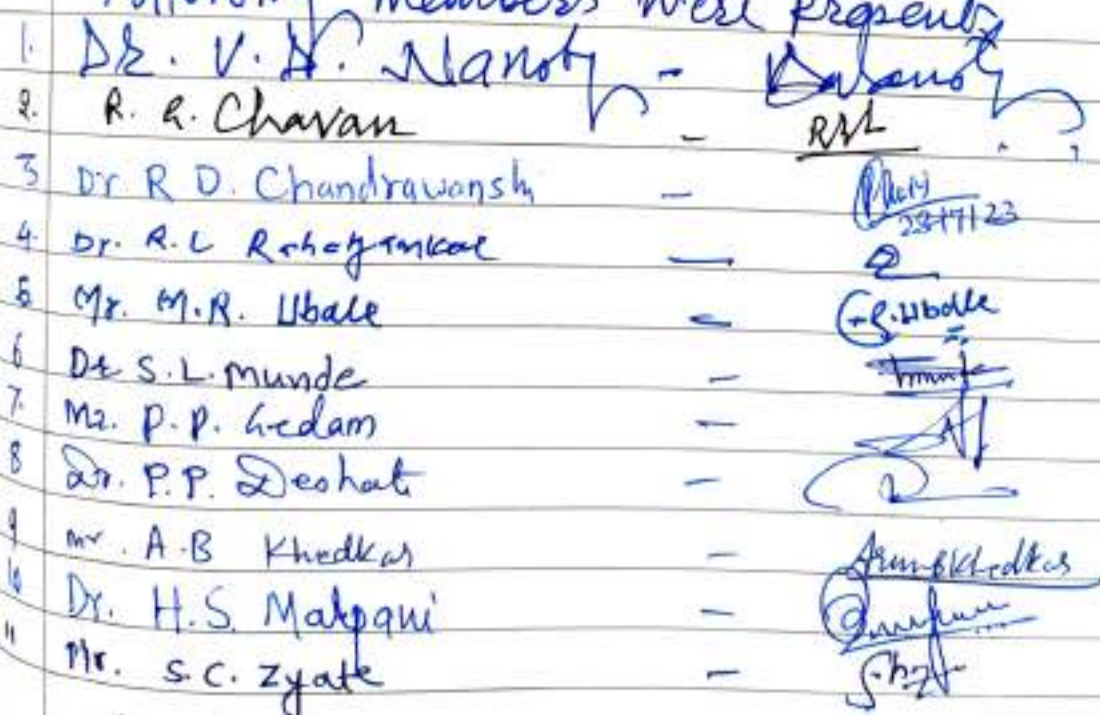 members were present
1. Dr. V. N. Nanoty -
2. R. R. Chavan -
3 Dr R D. Chandrawanshi -
4. Dr. R. L -
5 Mr. M.R. Ubale - Ubale
6 Dr S.L. Munde -
7. Mr. P.P. Gedam -
8 Dr. P.P. Deohate -
9 Mr. A.B Khedkar - Arun B Khedkar
10 Dr. H.S. Malpani -
11 Mr. S.C. Zyate -